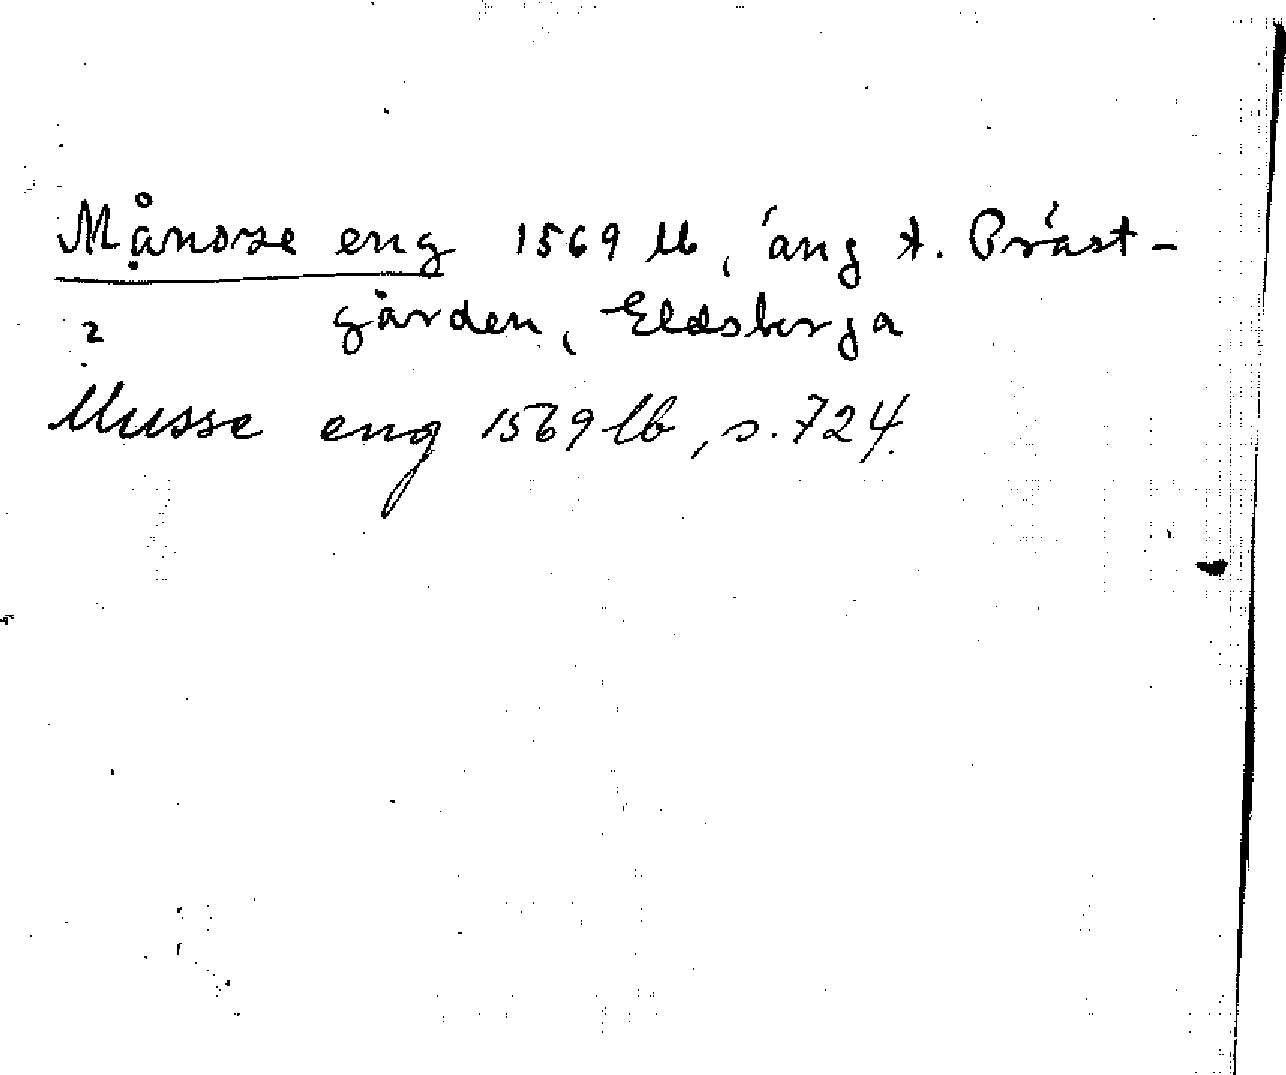 Månsse eng 1569 lb, äng t. Präst-
gården, Eldsberga
2
Musse eng 1569 lb, s. 724.